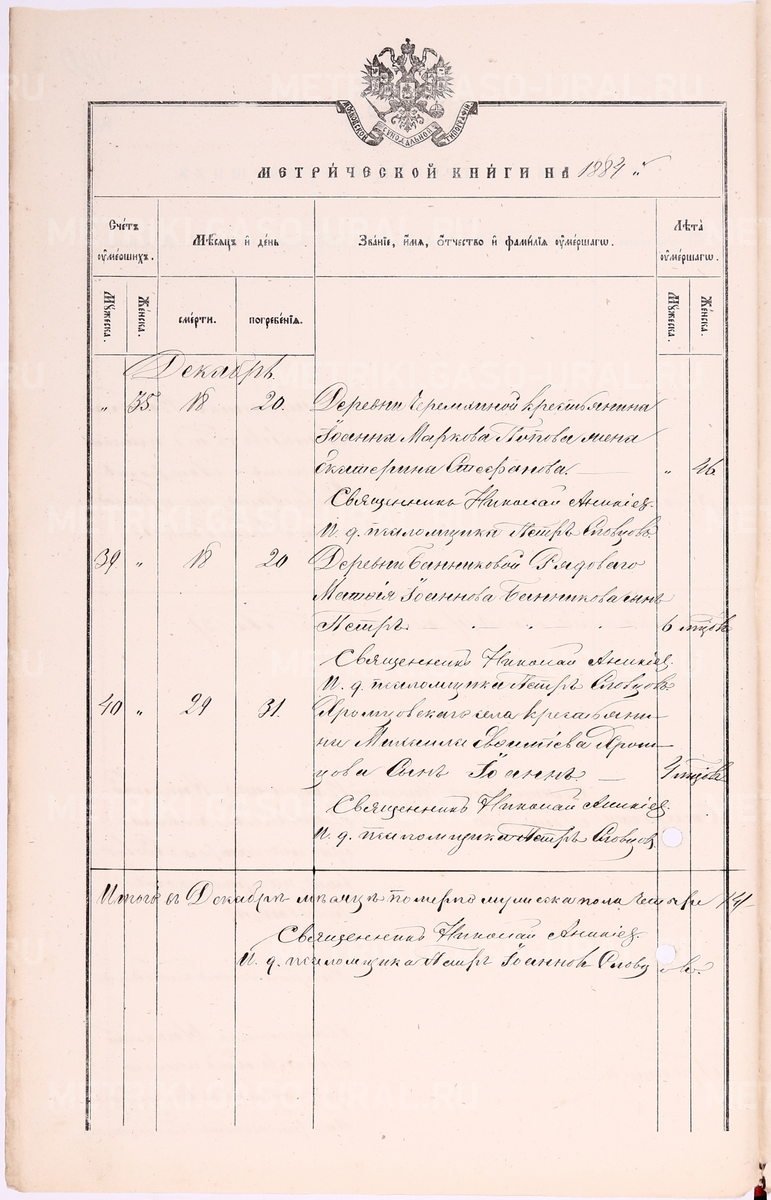 МОСКОВСКОЙ СѴНОДАЛЬНОЙ ТИПОГРАФІИ
МЕТРИ́ЧЕСКОЙ КНИ́ГИ НА 1884 „
Счетъ оумершихъ.
Мѣсяцъ и день
Званіе, имя, отчество и фамилія оумершагω.
Лѣта оумершагω.
Мужеска.
Женска.
смерти.
погребенія.
Мужеска.
Женска.
Декабрь.
„ 35 18 20. Деревни Черемхиной крестьянина
Іоанна Маркова Попова жена
Екатерина Стефанова. „ 46
Священникъ Николай Аникіев.
И. д. псаломщика Петръ Словцовъ
39 „ 18 20 Деревни Банниковой Рядоваго
Матѳія Іоаннова Банникова сынъ
Петръ 6 мцовъ
Священникъ Николай Аникіев.
И. д. псаломщика Петръ Словцовъ
40 „ 29 31. Хромцовскаго села крестьяни-
на Михаила Хром-
цова Сынъ Іоаннъ
Священникъ Николай Аникіев.
И. д. псаломщика Петръ Словцовъ
Итого въ Декабрѣ мѣсяцѣ померло мужеска пола четыре /4/
Священникъ Николай Аникіев.
И. д. псаломщика Петръ Іоанновъ Словцовъ.
METRIKI.GASO-URAL.RU